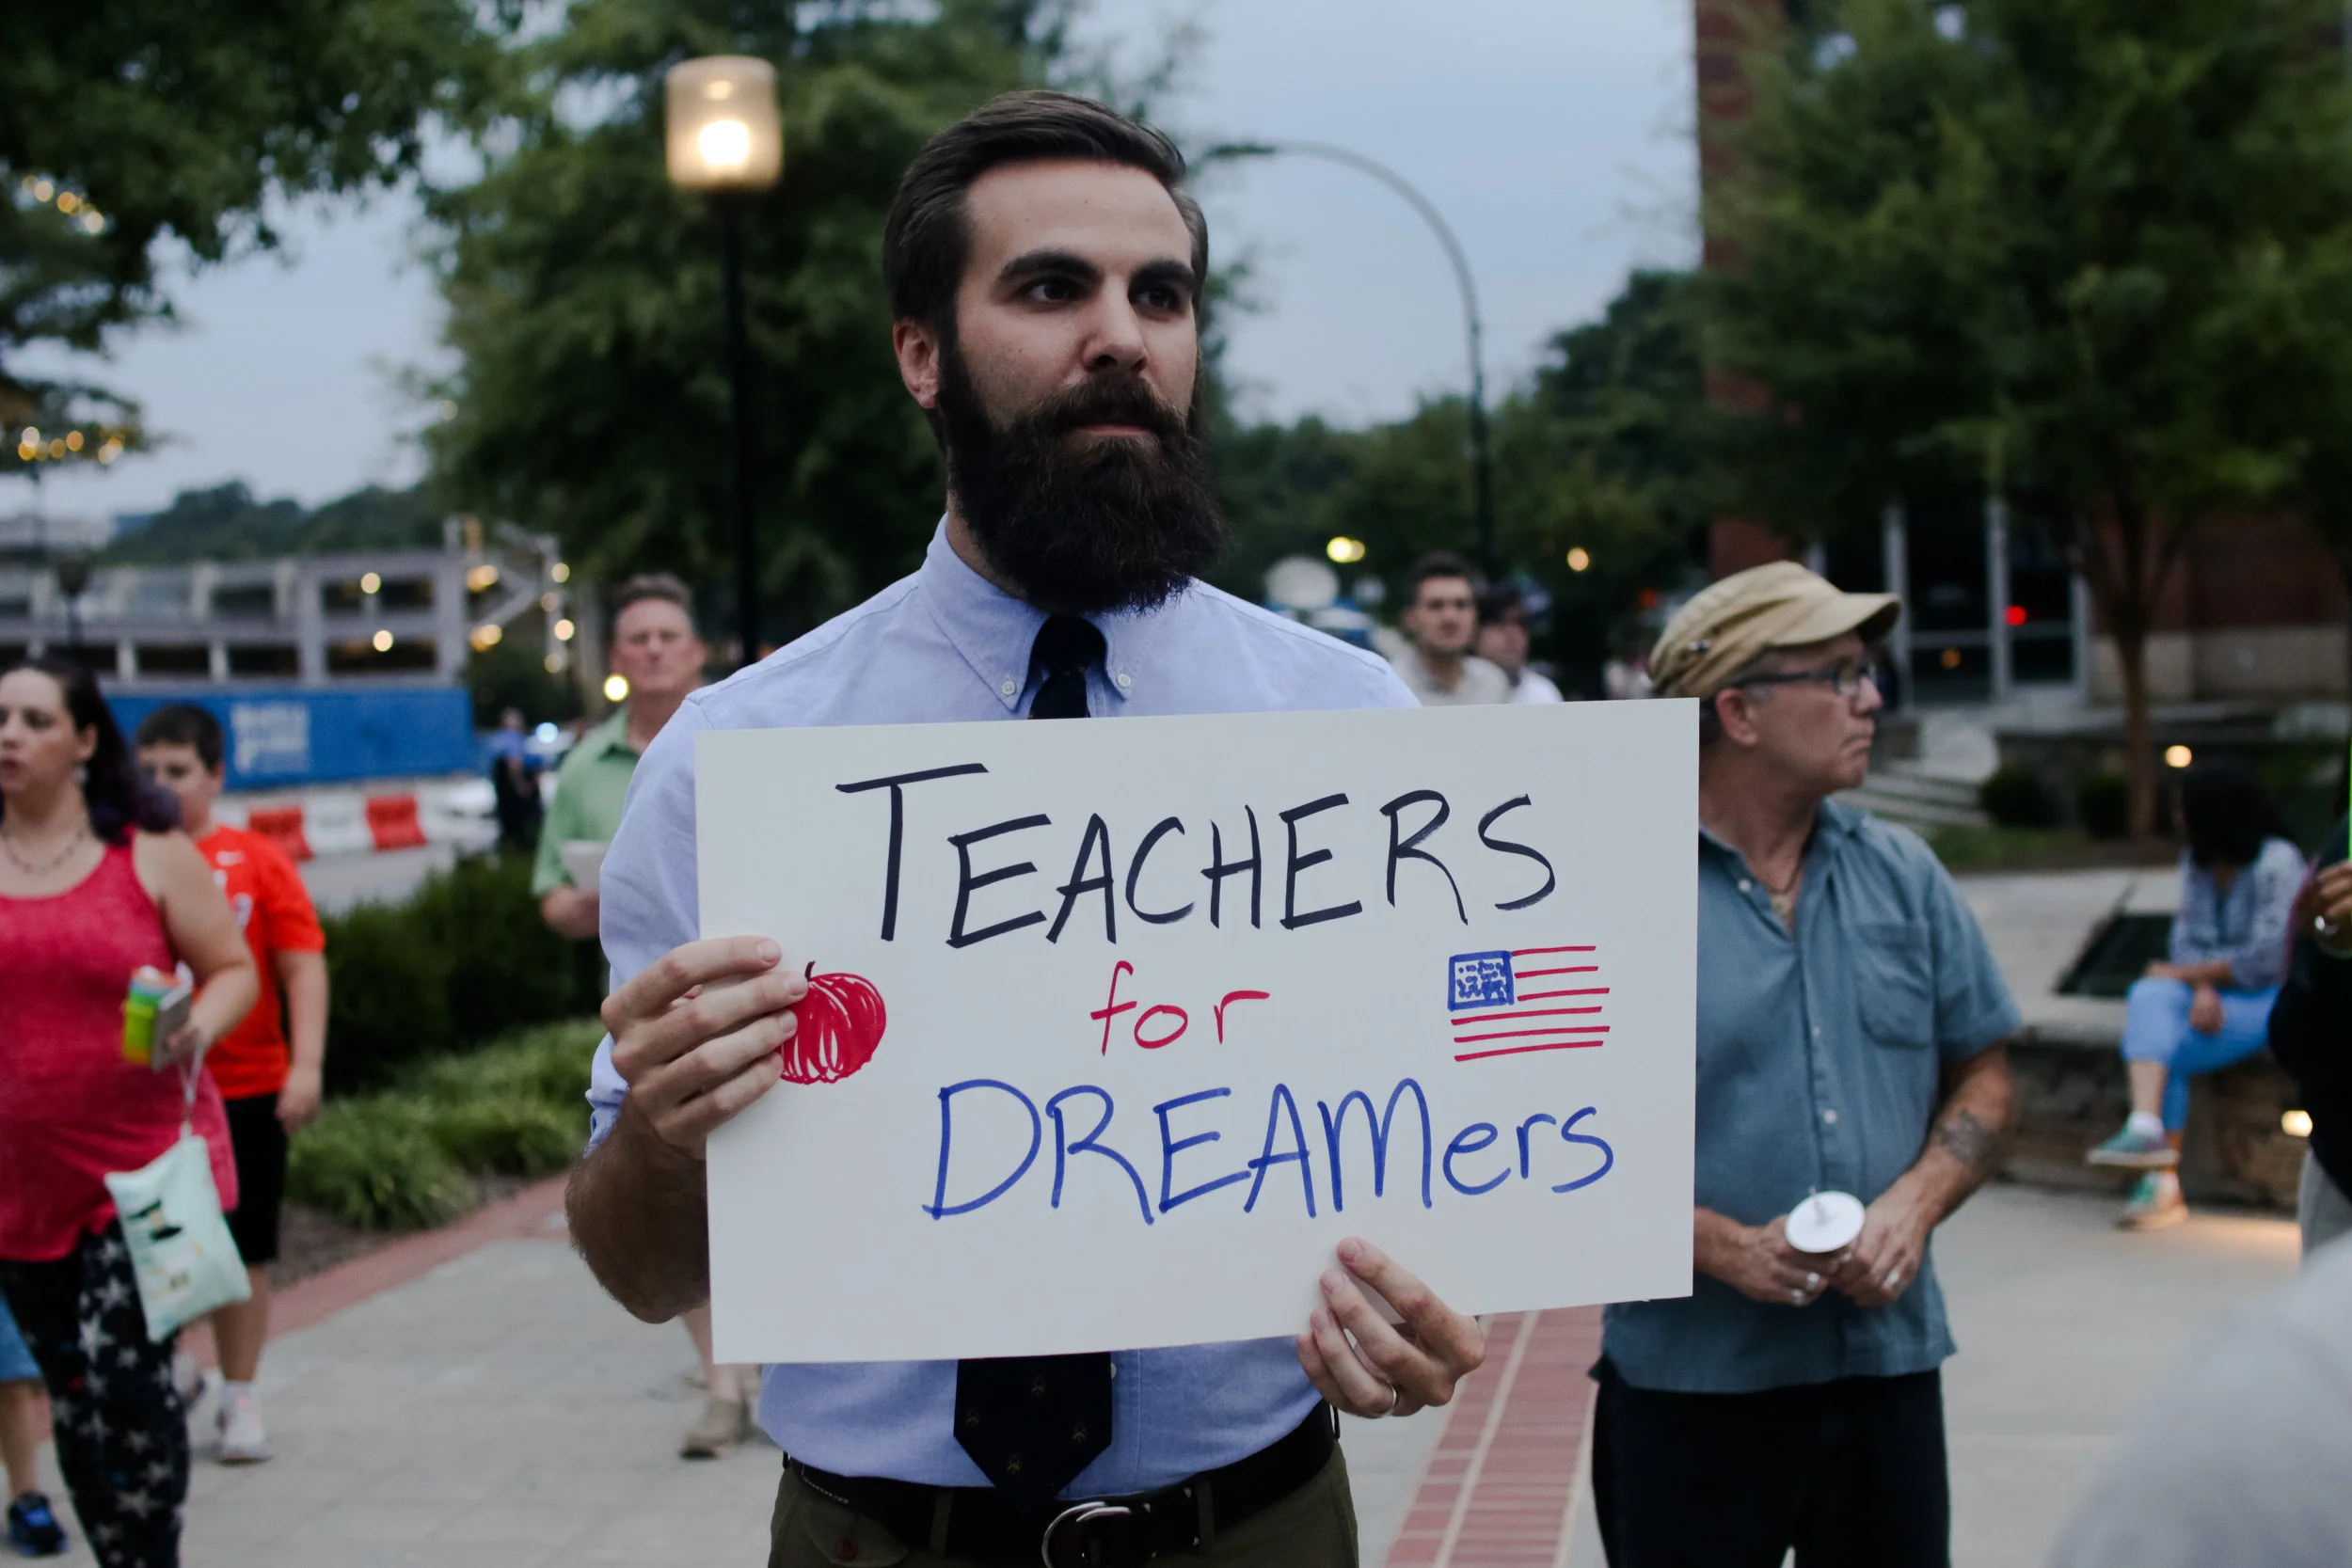 TEACHERS
for
DREAMers